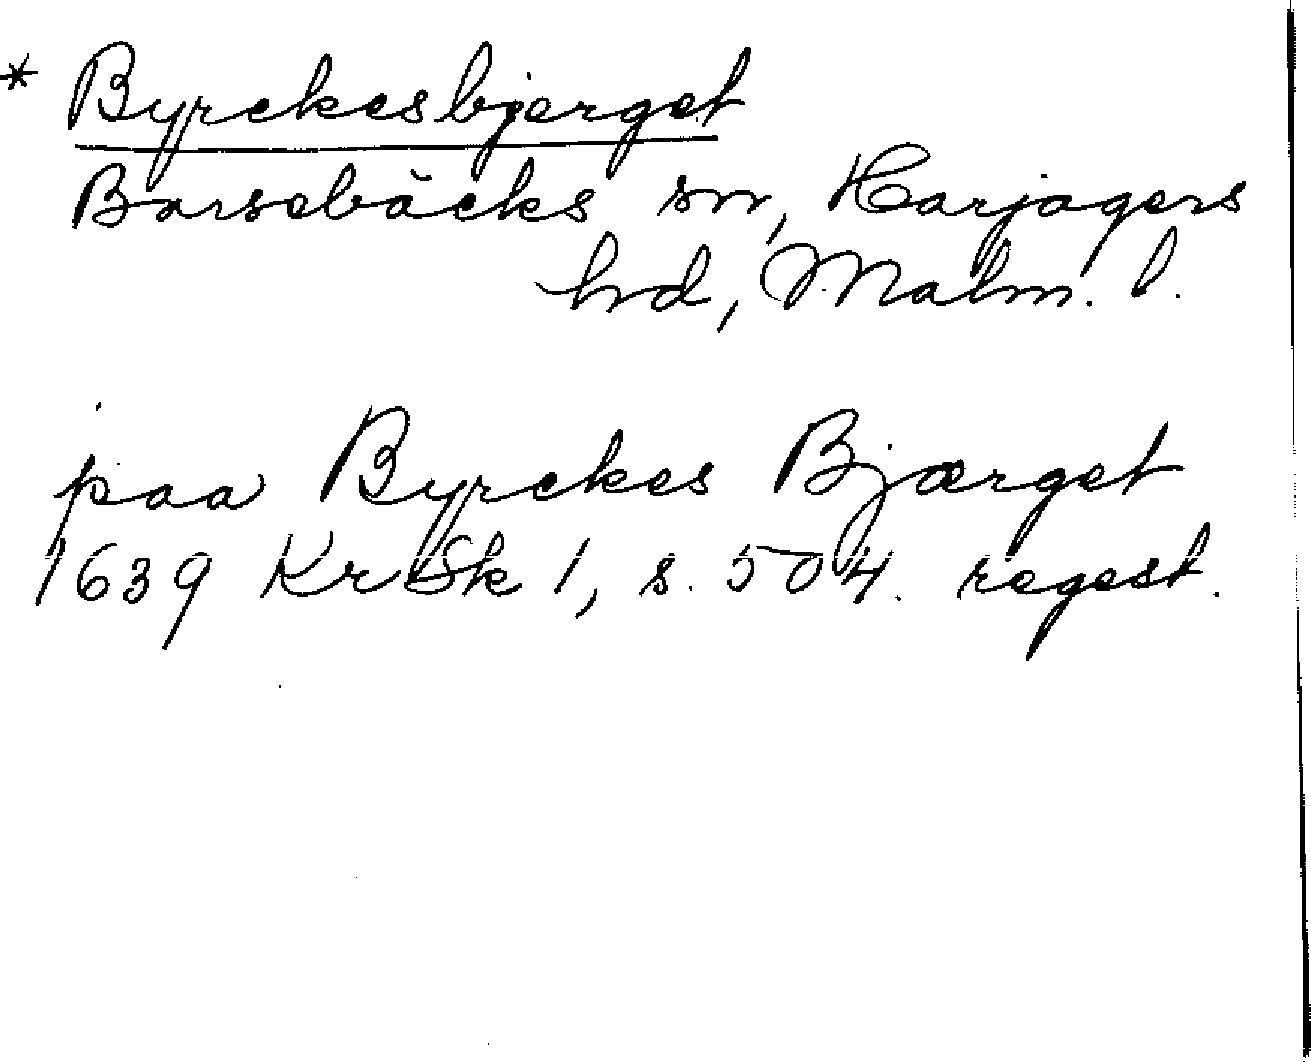 * Byrckesbjerget
Barsebäcks sn, Harjagers
hd, Malm. l.
paa Byrckes Bjærget
1639 KrSk 1, s. 504. regest.